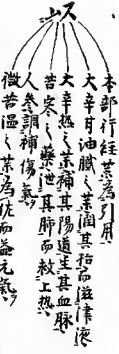 本部行經薬為引用
大辛甘油膩之薬潤其枯而滋津液
大辛熱之薬補其陽道生其血脉
苦寒之藥泄其肺而救上熱
人參調補傷氣
微苦温之薬為佐而益元氣